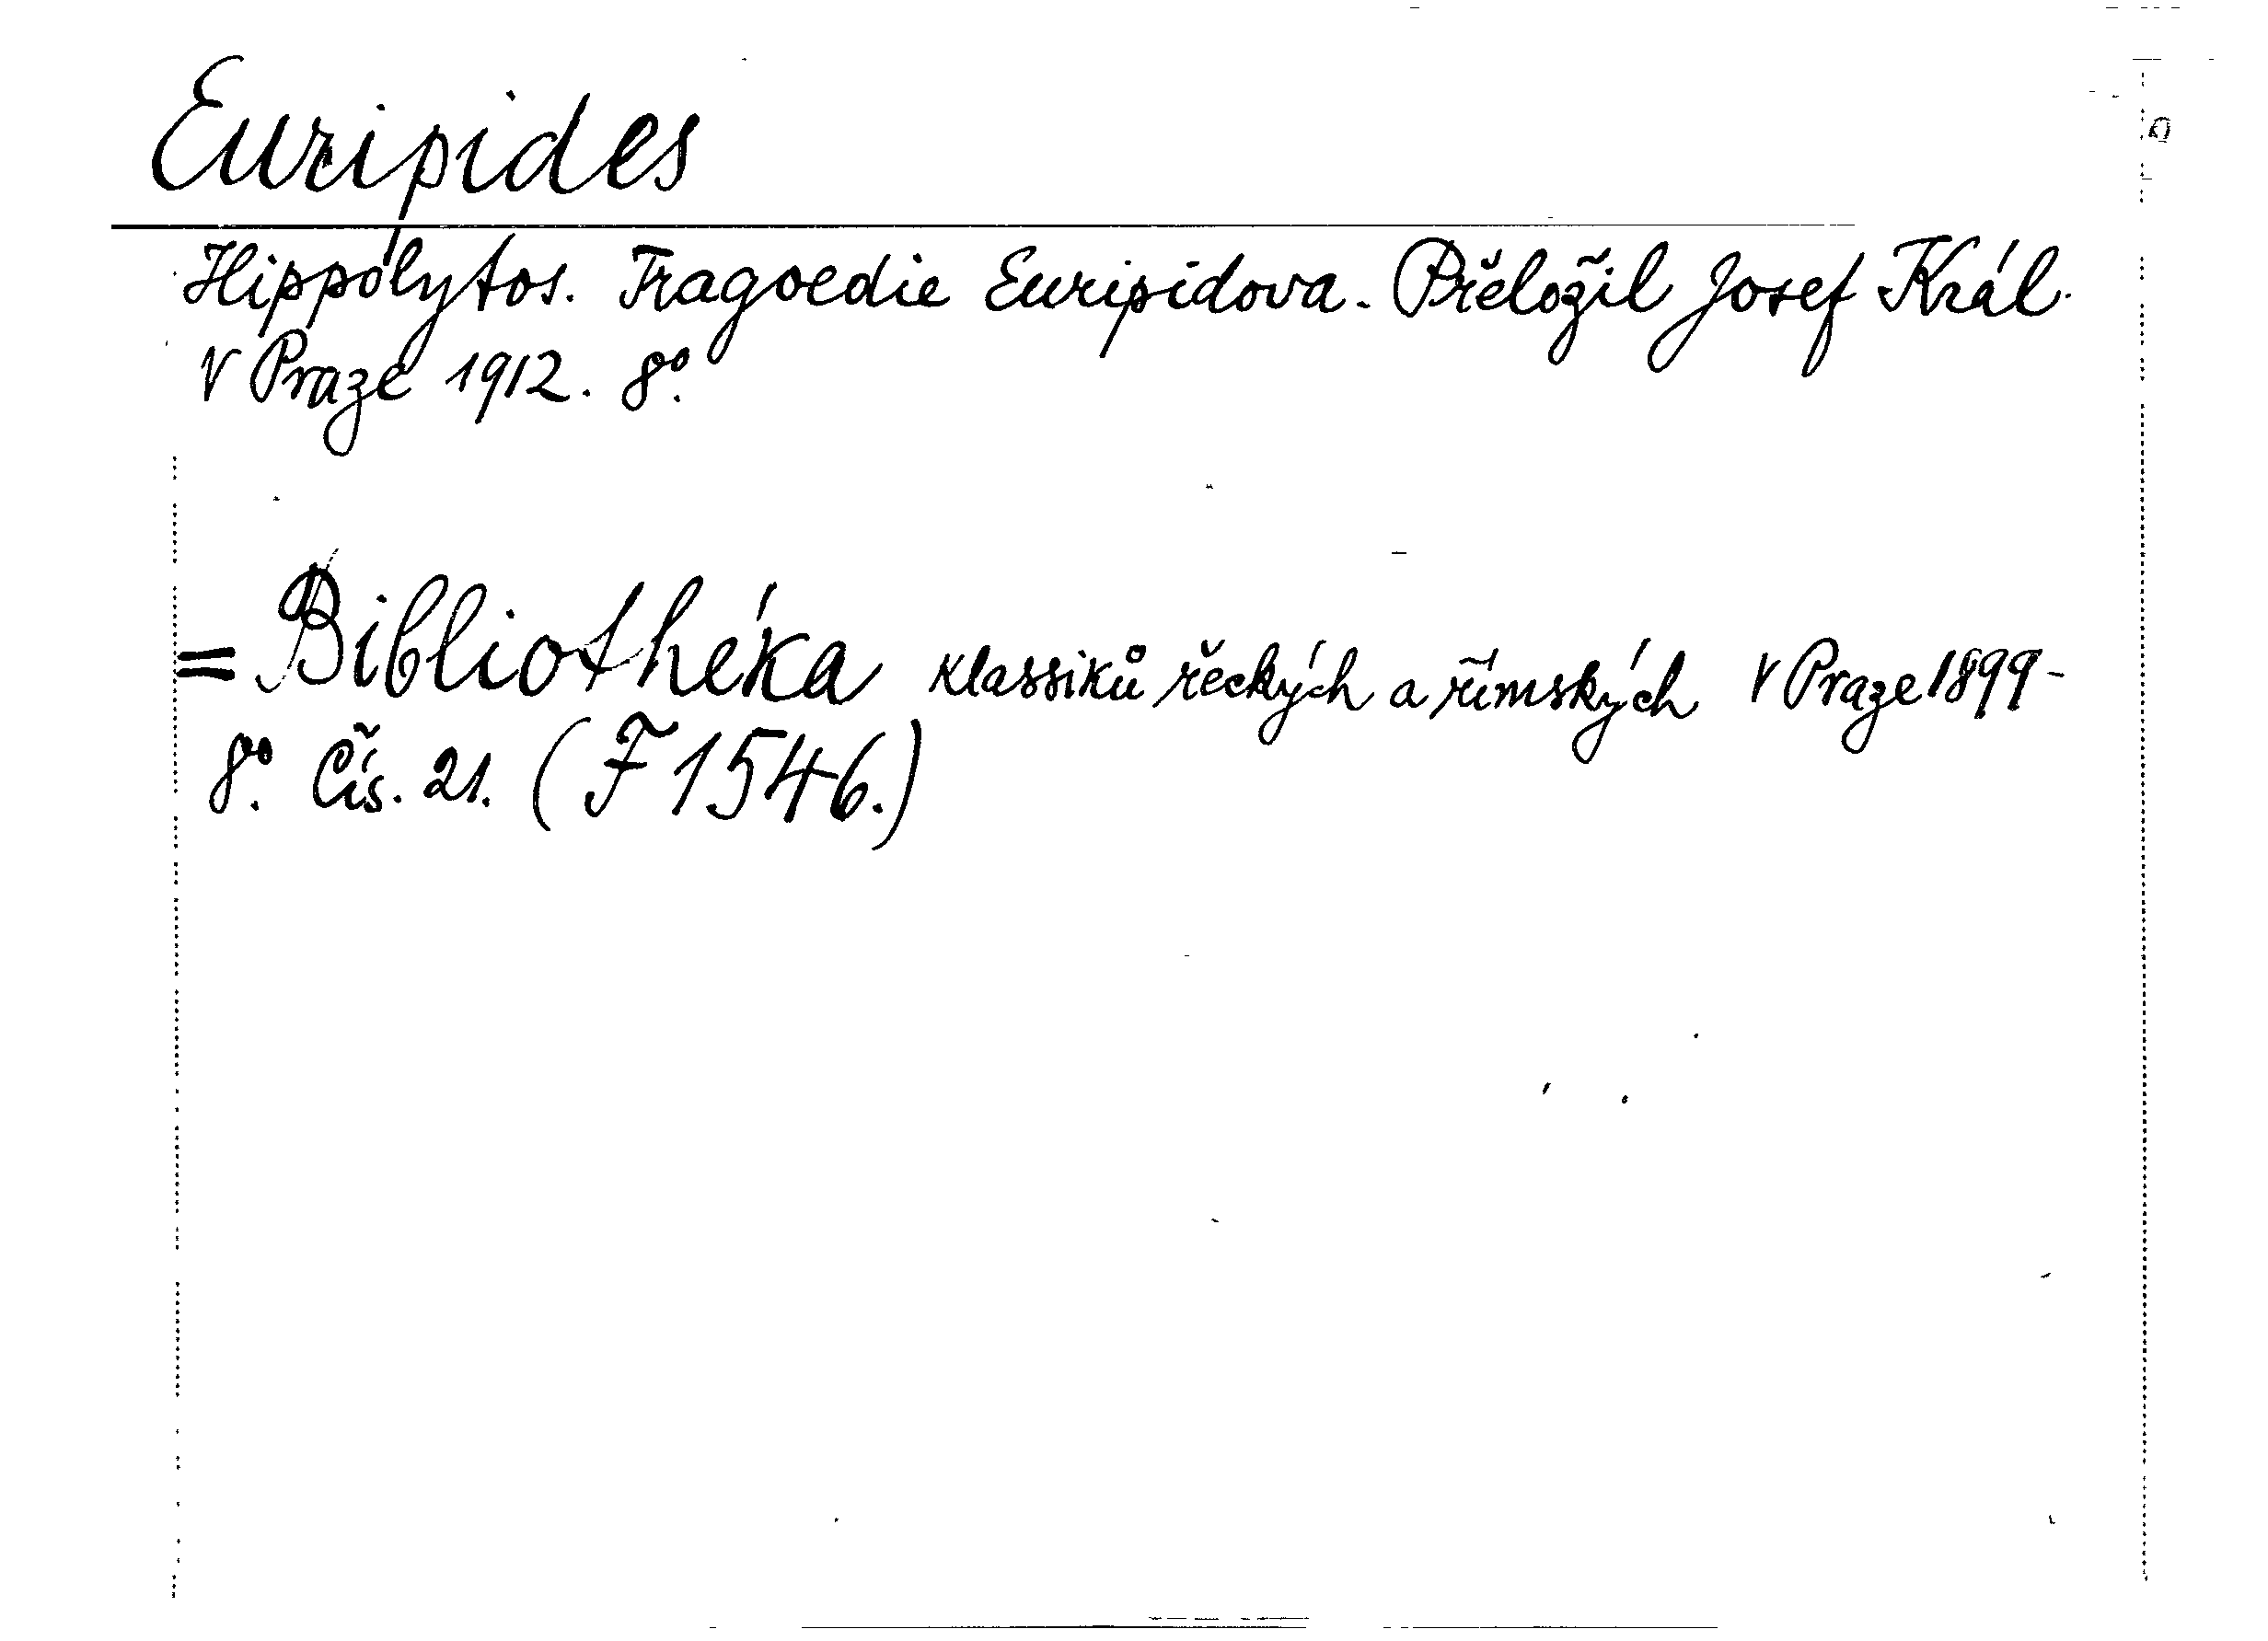 Euripides
Hippolytos. Tragoedie Euripidova. Přeložil Josef Král.
V Praze 1912. 8°.
= Bibliothéka klassiků řeckých a římských V Praze 1899-
8°. Čís. 21. (F 1546.)